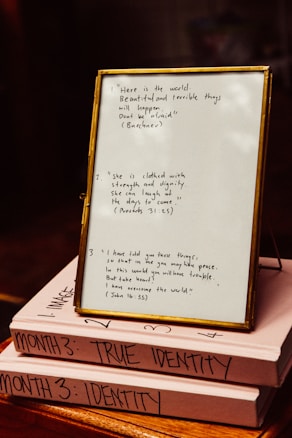 1. "Here is the world
Beautiful and terrible things
will happen.
Dont be afraid"
(Buechner)
2. "She is clothed with
strength and dignity.
She can laugh at
the days to come."
(Proverbs 31:25)
3. "I have told you these things,
so that in me you may have peace.
In this world you will have trouble.
But take heart!
I have overcome the world"
(John 16:33)
1. IMAGE
2
3
4
MONTH 3: TRUE IDENTITY
MONTH 3: IDENTITY